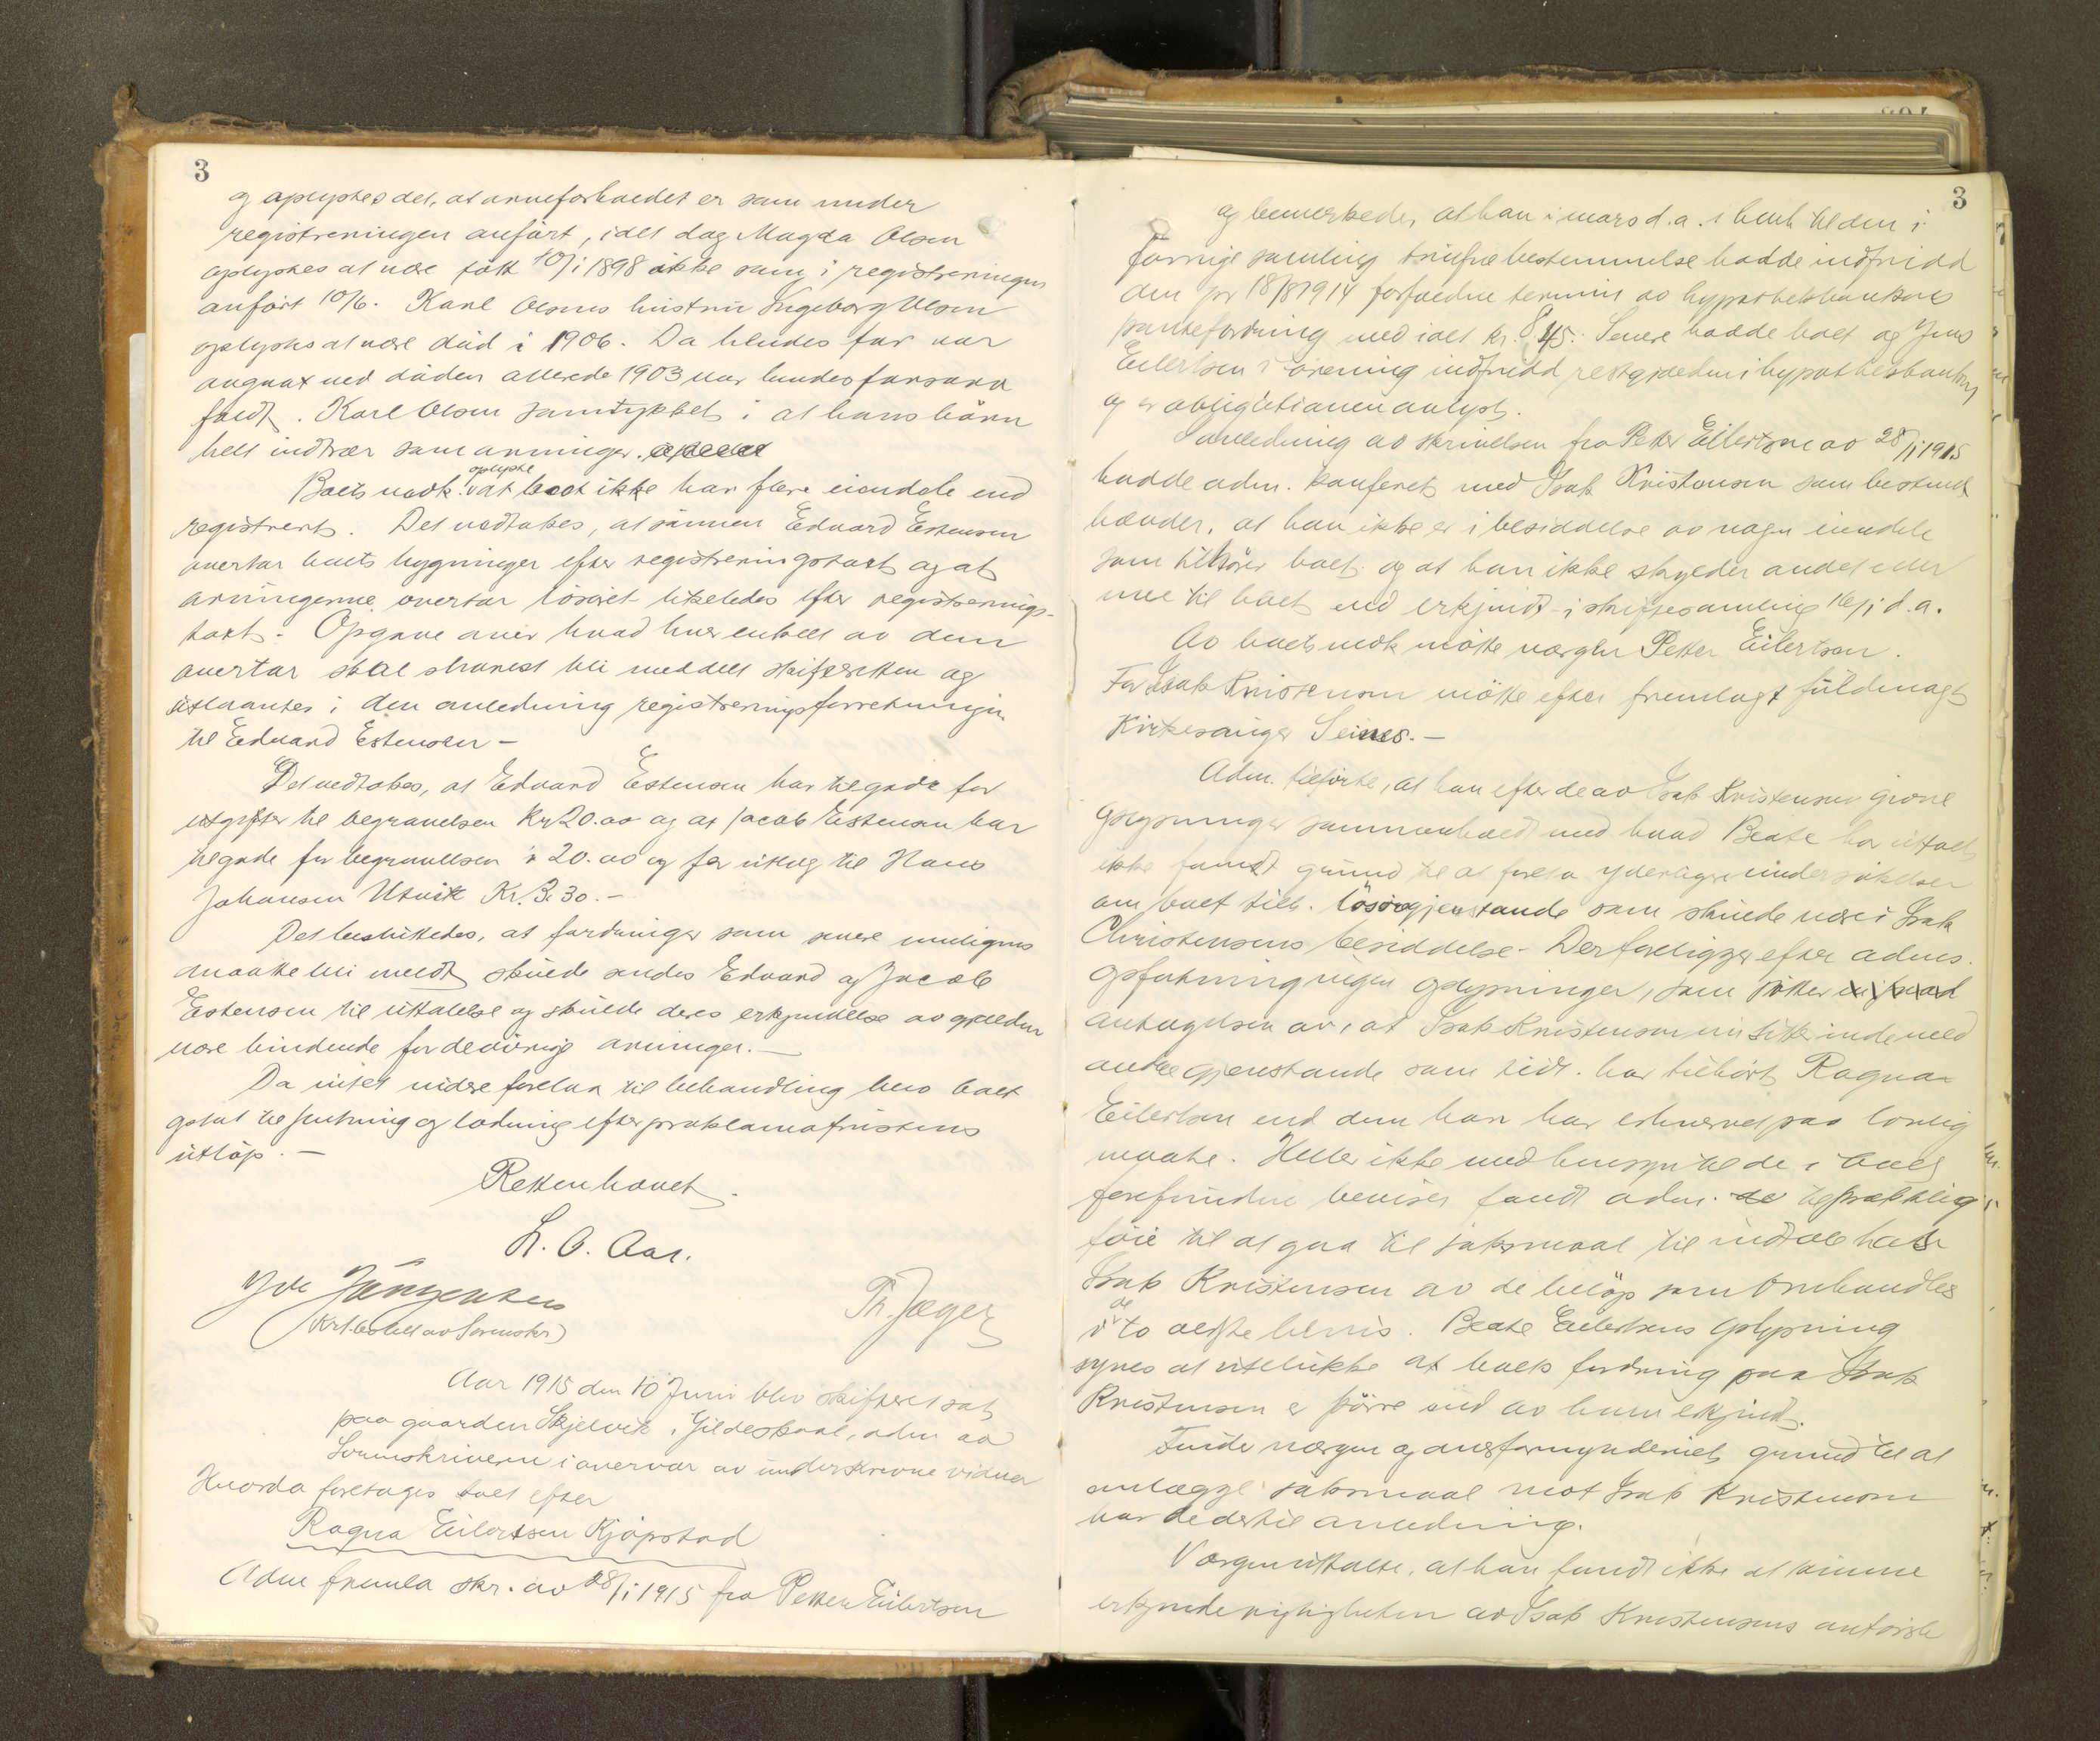 3
og oplystes det, at arveforholdet er som under
registreringen anført, idet dog Magda Olsen
oplystes at være født 10/1 1898 ikke som i registreringen
anført 10/6. Karl Olsens hustru Ingeborg Olsen
oplystes at være død i 1906. Da hendes far var
angaat ved døden allerede 1903 var hendes farsarv
faldt. Karl Olsen samtykket i at hans børn
helt indtrær som arvinger.
Boets vedk. oplyste at boet ikke har flere eiendele end
registrert. Det vedtokes, at sønnen Edvard Estensen
overtar boets bygninger efter registreringstakst og at
arvingerne overtar løsøret likeledes efter registrerings-
takst. Opgave over hvad hver enkelt av dem
overtar skal snarest bli meddelt skifteretten og
utlaantes i den anledning registreringsforretningen
til Edvard Estensen –
Det vedtokes, at Edvard Estensen har tilgode for
utgifter til begravelsen Kr 20.00 og at Jacob Estensen har
tilgode for begravelsen " 20.00 og for utlæg til Hans
Johansen Utvik Kr. 3.30. –
Det besluttedes, at fordringer som senere muligens
maatte bli meldt skulde sendes Edvard og Jacob
Estensen til uttalelse og skulde deres erkjendelse av gjælden
være bindende for de øvrige arvinger. –
Da intet videre forelaa til behandling blev boet
opsat til slutning og lodning efter proklamafristens
utløp. –
Retten hævet.
L. O. Aar.
Joh Jørgensen
Th. Jæger
(Krt. bestell av Sorenskr)
Aar 1915 den 10 Juni blev skifteret sat
paa gaarden Skjelvik i Gildeskaal, adm av
Sorenskriveren i overvær av underskrevne vidner
Hvorda foretoges boet efter
Ragna Eilertsen Kjøpstad
Adm fremla skr. av 28/1 1915 fra Petter Eilertsen
3
og bemerkede, at han i mars d.a. i henh til den i
forrige samling trufne bestemmelse hadde indfridd
den pr 18/8 1914 forfaldne termin av hypothekbankens
pantefordring med ialt kr. 8.45. Senere hadde boet og Jens
Eilertsen i forening indfridd restgjælden i hypothekbanken
og er obligationen avlyst.
I anledning av skrivelsen fra Petter Eilertsen av 28/1 1915
hadde adm. konferert med Isak Kristensen som bestemt
hævder, at han ikke er i besiddelse av nogen eiendele
som tilhører boet og at han ikke skylder andet eller
mere til boet end erkjendt i skiftesamling 16/1 d.a.
Av boets vedk møtte vergen Petter Eilertsen.
For Isak Kristensen møtte efter fremlagt fuldmagt
Kirkesanger Seines. –
Adm. tilførte, at han efter de av Isak Kristensen givne
oplysninger sammenholdt med hvad Beate har uttalt
ikke fandt grund til at foreta yderligere undersøkelser
om boet tilh. løsøregjenstande som skulde være i Isak
Christensens besiddelse. Der foreligger efter adms.
opfatning ingen oplysninger, som støtter
antagelsen av, at Isak Kristensen nu sitter inde med
andre gjenstande som tidl. har tilhørt Ragna
Eilertsen end dem han har erhvervet paa lovlig
maate. Heller ikke med hensyn til de i boet
forefundne beviser fandt adm. tilstrækkelig
føie til at gaa til søksmaal til indtale hos
Isak Kristensen av de beløp som omhandles
i de to ældste bevis. Beate Eilertsens oplysning
synes at utelukke at boets fordring paa Isak
Kristensen er større end av ham erkjendt.
Finder vergen og overformynderiet grund til at
anlægge søksmaal mot Isak Kristensen
har de dertil anledning.
Vergen uttalte, at han fandt ikke at kunne
erkjende rigtigheten av Isak Kristensens anførsle